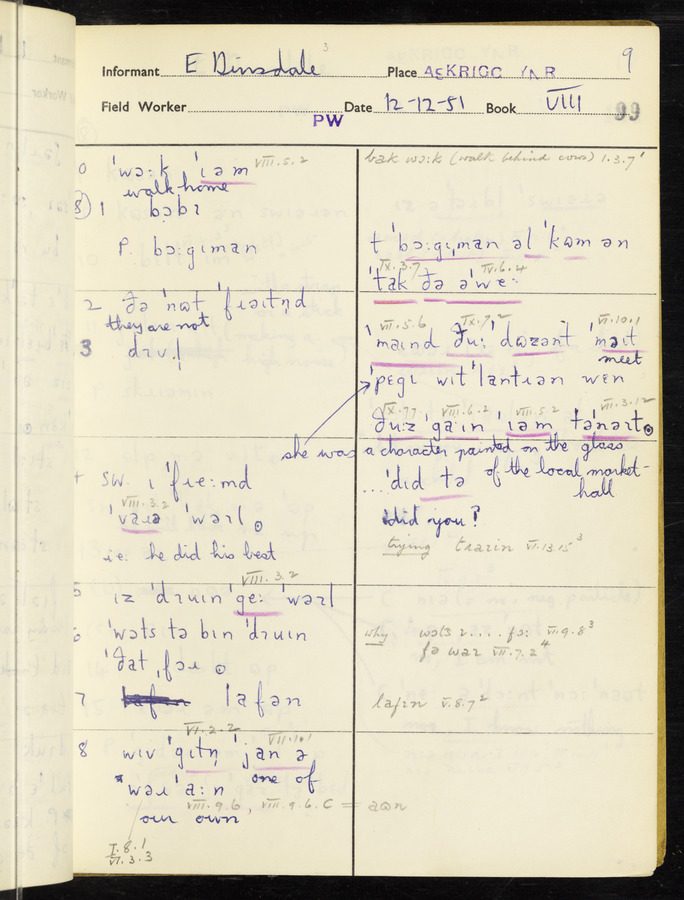 3
9
Informant E Dinsdale Place ASKRIGG YNR
Field Worker Date 12-12-51 Book VIII 99
PW
0 ˈwɔːk ˈɪəm VIII.5.2
walk home
8) 1 bɔbɪ
P. bɔːgɪman
2 ðə ˈnɒt ˈfɪəɪtn̩d
they are not
3 dɪvl̩
+ SW. ɪ ˈfɪeːmd
VIII.3.2
ˈvaɪə ˈwərl ⊙
i.e. he did his best
VIII.3.2
5 ɪz ˈdɪuɪn ˈgeː ˈwərl
6 ˈwɔts tə bɪn ˈdɪuɪn
ˈðat ˌfɔɪ ⊙
7 lafən
VI.2.2 VII.10.1
8 wɪv ˈgɪtn̩ ˈjan ə
one of
ˈwəɪ ˈaːn
VIII.9.6, VIII.9.6.C = aʊn
our own
I.8.1
VI.3.3
bak wɔːk (walk behind cows) 1.3.7
t ˈbɔːgɪˌman əl ˈkʊm ən
IX.3.7 IV.6.4
ˈtak ðə əˈweː
VII.5.6 IX.7.2 VI.10.1
ˈmaɪnd ðuː dʊzənt ˈməɪt
meet
ˈpegɪ wɪt ˈlantɪən wen
IX.7.7 VIII.6.2 VIII.5.2 VII.3.12
ðuːz ˈgaɪn ˈɪəm təˈnəɪt ⊙
she was a character painted on the glass
of the local market-
hall
.... ˈdɪd tə
did you?
trying tɪaɪɪn VI.13.15 3
why wɔts ɪ .... fɔː VII.9.8 3
fə waɪ VII.7.2 4
lafɪn V.8.7 2